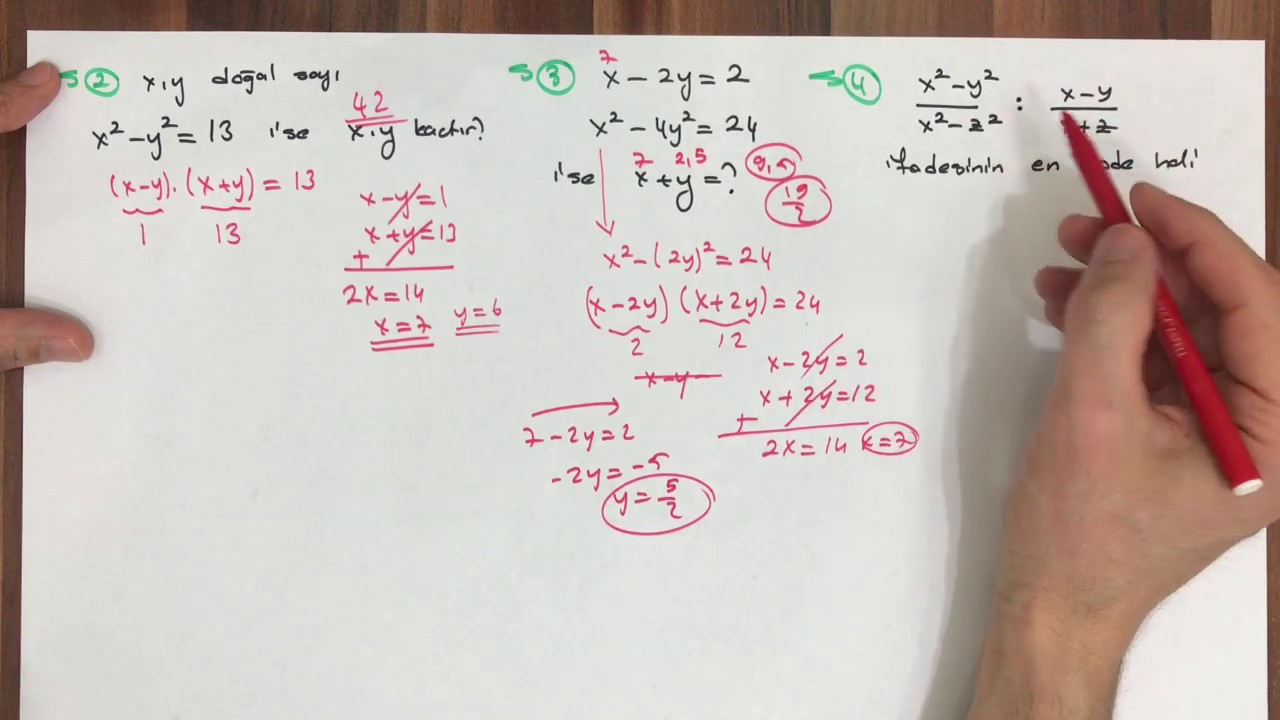 S2 x,y doğal sayı
x² - y² = 13 ise x.y kaçtır?
42
(x-y).(x+y) = 13
1 13
x - y = 1
x + y = 13
+
2x = 14
x = 7 y = 6
S3 x - 2y = 2
7
x² - 4y² = 24
ise x + y = ?
7 2,5 9,5
19/2
x² - (2y)² = 24
(x - 2y) (x + 2y) = 24
2 12
x - y
x - 2y = 2
x + 2y = 12
+
2x = 14 x = 7
7 - 2y = 2
-2y = -5
y = 5/2
S4 x² - y² / x² - z² : x - y / + z
ifadesinin en hali